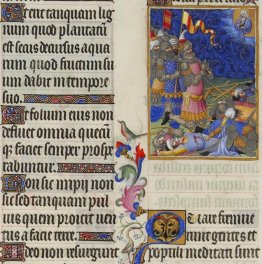 Et erit tanquam lig
num quod plantatū
est secus decursus aqua
rum quod fructum su
um dabit in tempore
suo.
Et folium eius non
defluet omnia quecū
q faciet semper prospe
rabuntur.
Non sic impii non
sic sed tanquam pul
uis quem proicit uen
tus a facie terre.
Ideo non resurgunt
Quare fremue
runt gentes et
populi meditati sunt